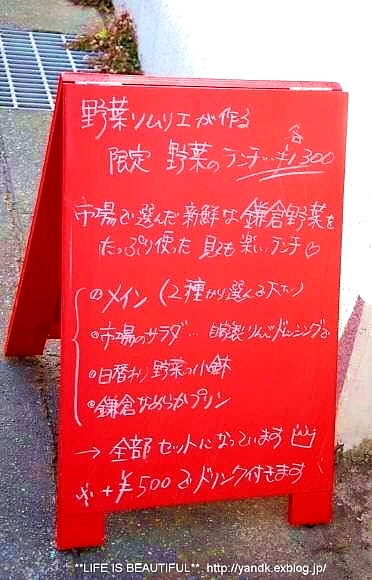 野菜ソムリエが作る
限定 野菜のランチ…各¥1,300
市場で選んだ新鮮な鎌倉野菜を
たっぷり使った 見ても楽しいランチ♡
メイン(2種から選んで下さい)
市場のサラダ… 自家製りんごドレッシングで
日替わり野菜の小鉢
鎌倉なめらかプリン
→ 全部セットになっています
※ +¥500でドリンク付きます
**LIFE IS BEAUTIFUL**, http://yandk.exblog.jp/